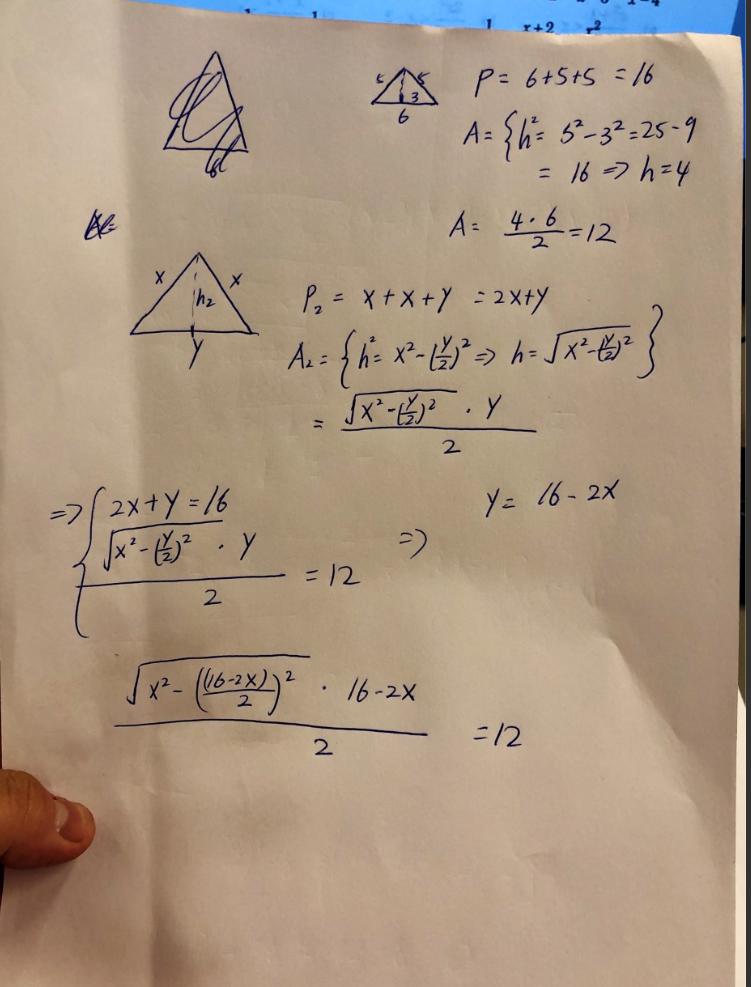 x+2 x²
5 5
3
6
P = 6+5+5 = 16
A = { h² = 5²-3² = 25-9
= 16 => h=4
A = 4·6/2 = 12
x x
h₂
y
P₂ = x+x+y = 2x+y
A₂ = { h² = x²-(y/2)² => h = √(x²-(y/2)²) }
= √(x²-(y/2)²) · y / 2
=> { 2x+y = 16
√(x²-(y/2)²) · y / 2 = 12
=>
y = 16-2x
√(x²-((16-2x)/2)²) · 16-2x / 2 = 12